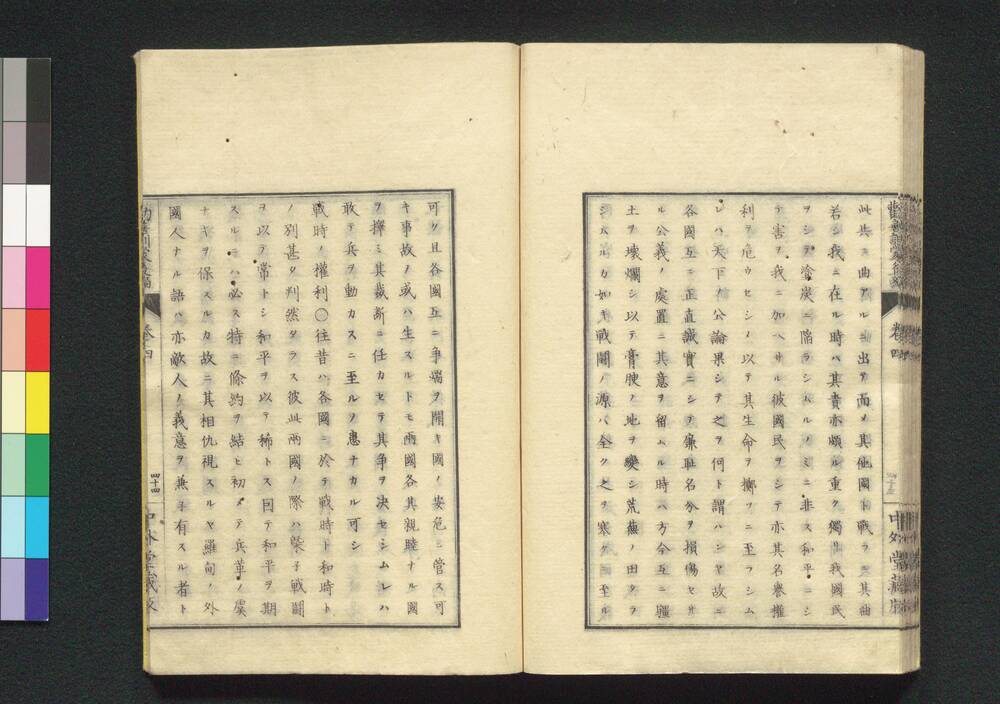 此其ノ曲アルニ出テ而メ其他國ト戰ヲ其曲
若シ我ニ在ル時ハ其責亦頗ル重ク獨リ我國民
ヲシテ塗炭ニ陥ラシムルノミニ非ス和平ニシ
テ害ヲ我ニ加ヘサル彼國民ヲシテ亦其名譽權
利ヲ危ウセシメ以テ其生命ヲ擲ツニ至ラシム
レハ天下ノ公論果シテ之ヲ何ト謂ハンヤ故ニ
各國互ニ正直誠實ニシテ廉耻名分ヲ損傷セサ
ル公義ノ處置ニ其意ヲ留ムル時ハ方今互ニ疆
土ヲ壊爛シ以テ膏腴ノ地ヲ變シ荒蕪ノ田タラ
シムルカ如キ戰鬪ノ源ハ全ク之ヲ塞クニ至ル
勸善訓蒙後編
卷四
四十三
中外堂藏版
可ク且各國互ニ争端ヲ開キ國ノ安危ニ管ス可
キ事故ノ或ハ生スルトモ兩國各其親睦ナル國
ヲ擇ミ其裁斷ニ任カセテ其争ヲ決セシムレハ
敢テ兵ヲ動カスニ至ルノ患ナカル可シ
戰時ノ權利〇往昔ハ各國ニ於テ戰時ト和時ト
ノ別甚タ判然タラス彼此兩國ノ際ハ槩子戰鬪
ヲ以テ常トシ和平ヲ以テ稀トス因テ和平ヲ期
スルニハ必ス特ニ條約ヲ結ヒ初メテ兵革ノ虞
ナキヲ保スルカ故ニ其相仇視スルヤ羅甸ノ外
國人ナル語ハ亦敵人ノ義意ヲ兼子有スル者ト
勸善訓蒙後編
卷四
四十四
中外堂藏版